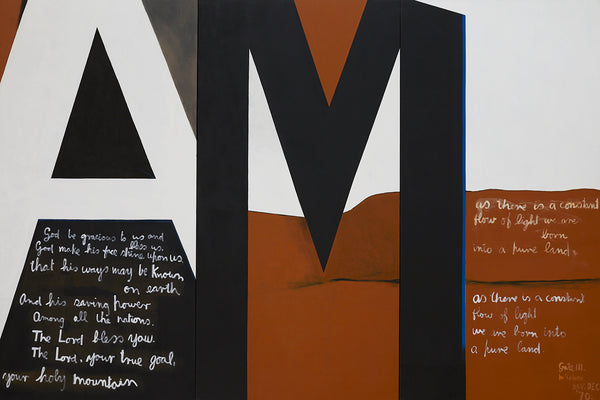 AM
God be gracious to us and
bless us.
God make his face shine upon us
that his ways may be known
on earth
And his saving power
Among all the nations.
The Lord bless you.
The Lord, your true goal,
your holy mountain
as there is a constant
flow of light we are
born
into a pure land.
as there is a constant
flow of light
we are born into
a pure land.
Gate III.
DEC
79.